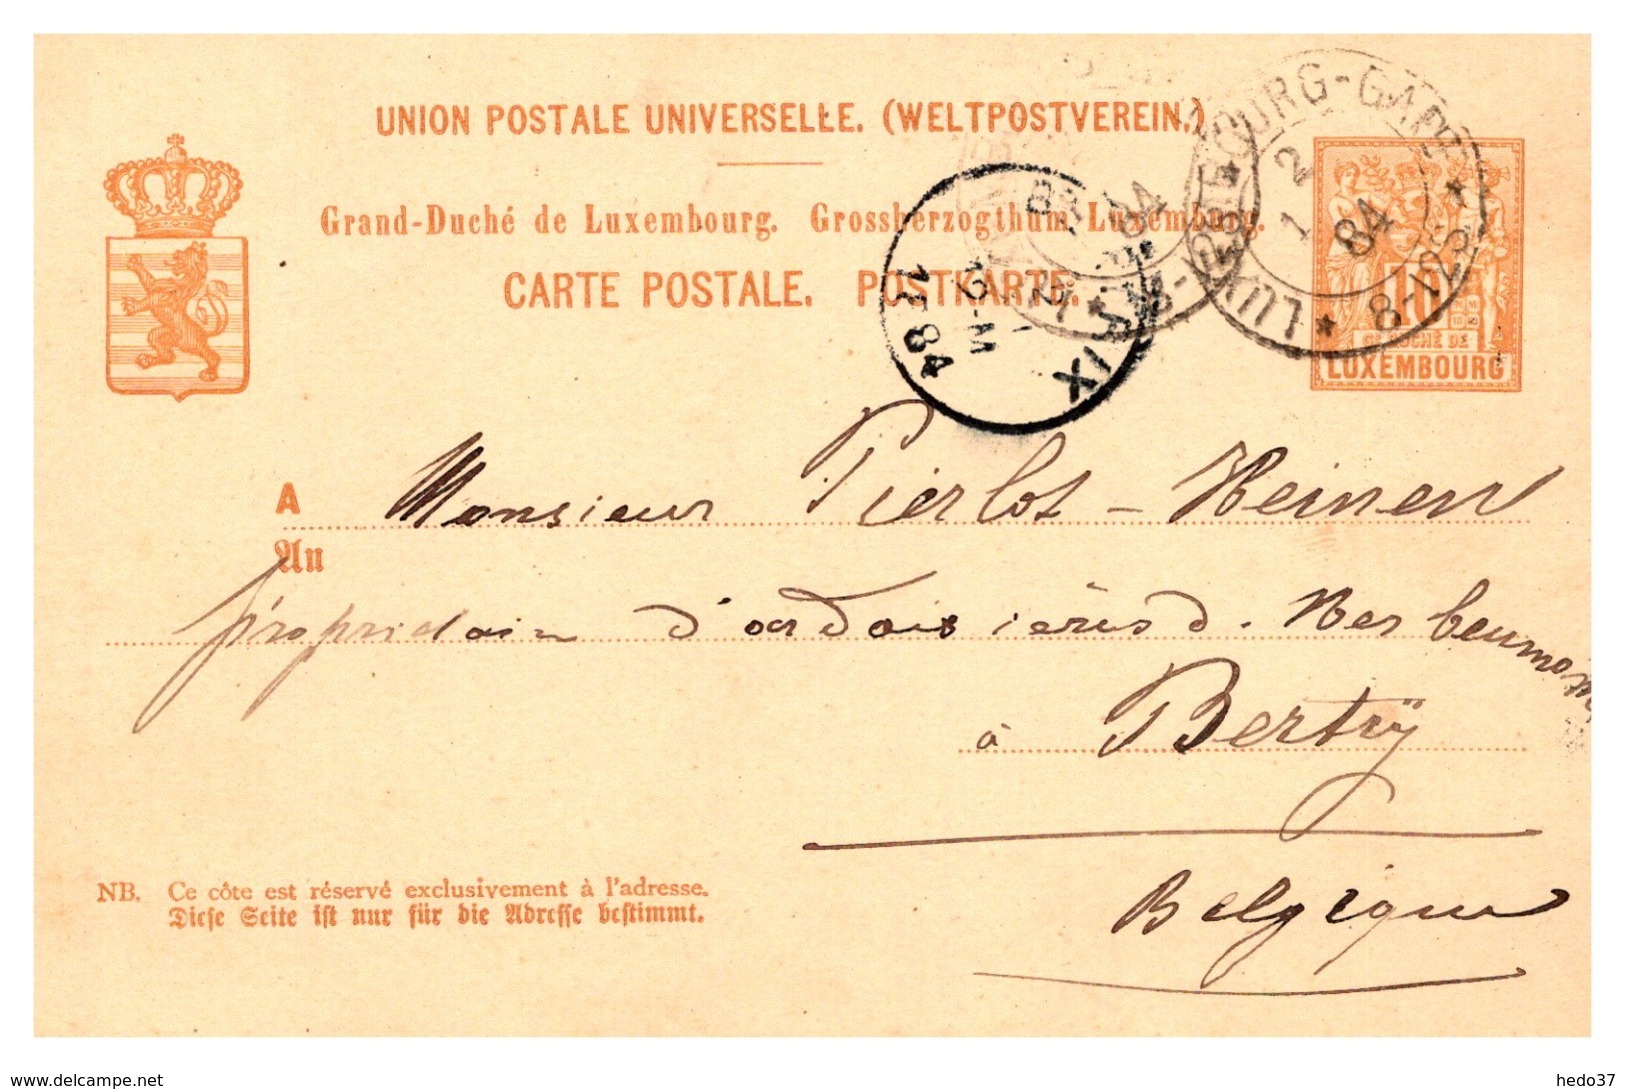 UNION POSTALE UNIVERSELLE. (WELTPOSTVEREIN.)
Grand-Duché de Luxembourg. Grossherzogthum Luxemburg.
CARTE POSTALE. POSTKARTE.
LUXEMBOURG-GARE
1 2 84
8-12S
AIX
9-M
1884
10
GD DUCHÉ DE
LUXEMBOURG
A Monsieur Pierlot-Heinen
An
propriétain d'ardoisières d. Herbeumont
à Bertrÿ
Belgique
NB. Ce côte est réservé exclusivement à l'adresse.
Diese Seite ist nur für die Adresse bestimmt.
www.delcampe.net
hedo37